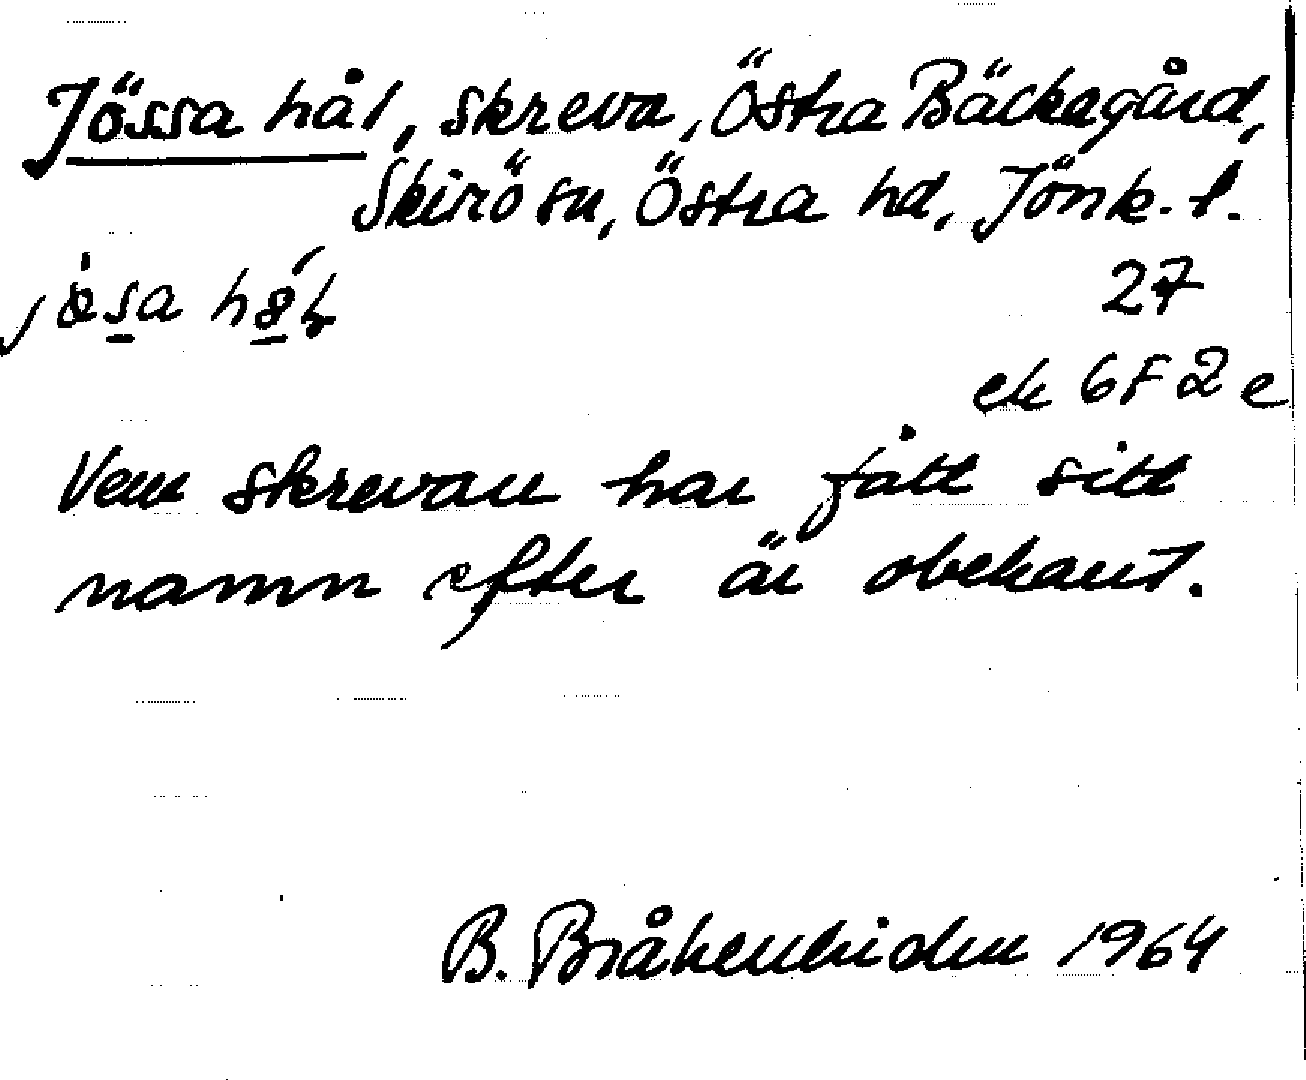 Jössa hål, skreva, Östra Bäckagård,
Skirö sn, Östra hd, Jönk. l.
27
ek 6F2e
Vem skrevan har fått sitt
namn efter är obekant.
B. 1964